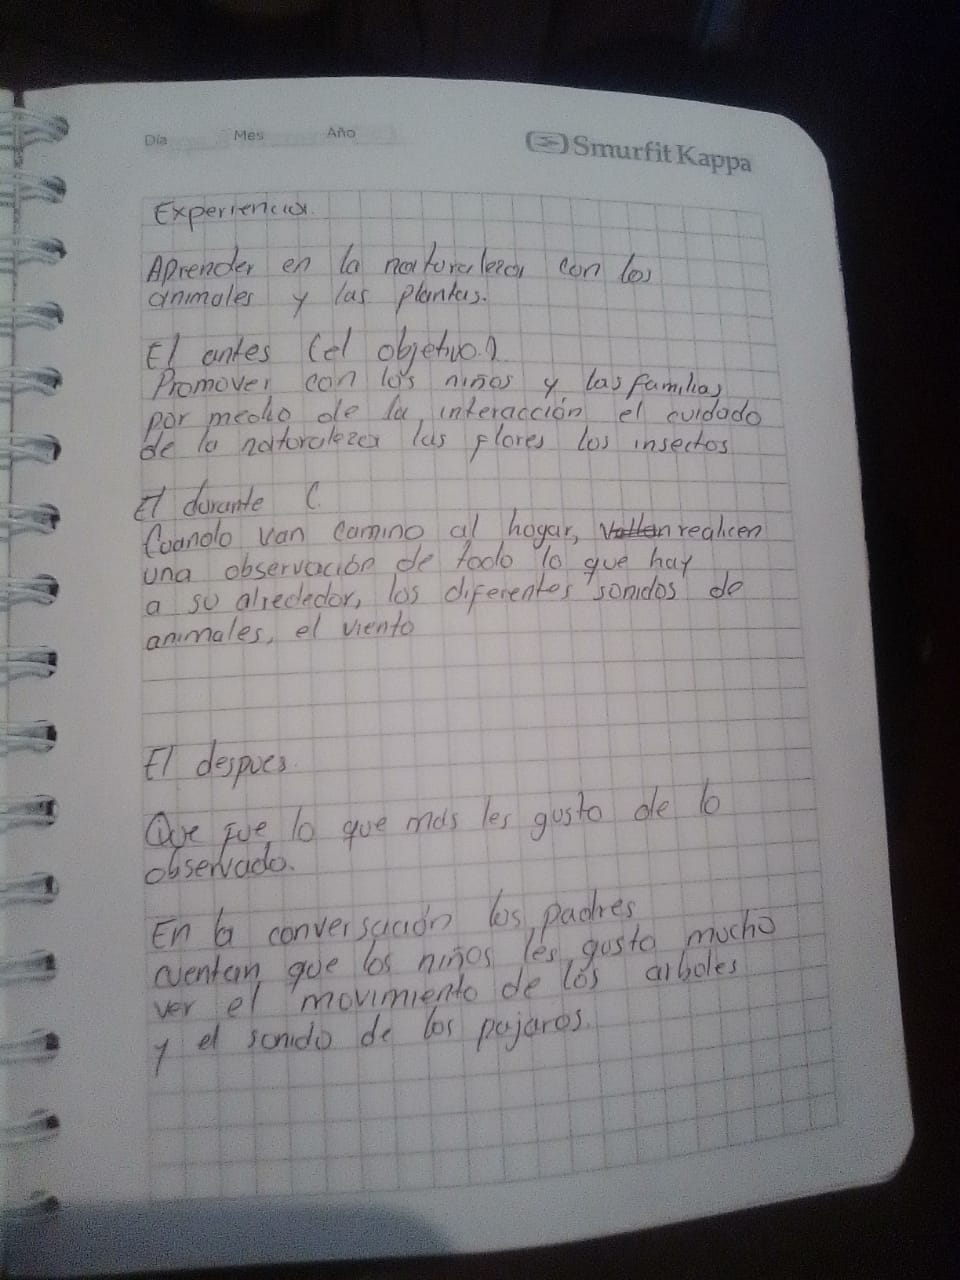 Día Mes Año
Smurfit Kappa
Experiencia.
Aprender en la naturaleza con los
animales y las plantas.
El antes (el objetivo.)
Promover con los niños y las familias
por medio de la interacción el cuidado
de la naturaleza las flores los insectos
El durante (.
Cuando van camino al hogar, realicen
una observación de todo lo que hay
a su alrededor, los diferentes sonidos de
animales, el viento
El despues.
Que fue lo que mas les gusto de lo
observado.
En la conversación los padres
cuentan que los niños les gusto mucho
ver el movimiento de los arboles
y el sonido de los pajaros.